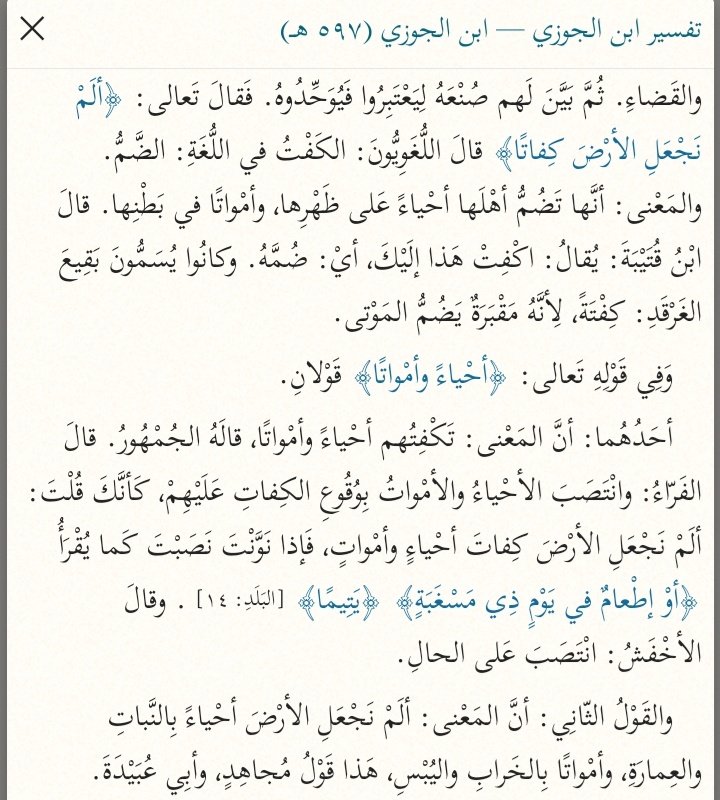 تفسير ابن الجوزي — ابن الجوزي (٥٩٧ هـ)
والقَضاءِ. ثُمَّ بَيَّنَ لَهم صُنْعَهُ لِيَعْتَبِرُوا فَيُوَحِّدُوهُ. فَقالَ تَعالى: ﴿ألَمْ
نَجْعَلِ الأرْضَ كِفاتًا﴾ قالَ اللُّغَوِيُّونَ: الكَفْتُ في اللُّغَةِ: الضَّمُّ.
والمَعْنى: أنَّها تَضُمُّ أهْلَها أحْياءً عَلى ظَهْرِها، وأمْواتًا في بَطْنِها. قالَ
ابْنُ قُتَيْبَةَ: يُقالُ: اكْفِتْ هَذا إلَيْكَ، أيْ: ضُمَّهُ. وكانُوا يُسَمُّونَ بَقِيعَ
الغَرْقَدِ: كِفْتَةً، لِأنَّهُ مَقْبَرَةٌ يَضُمُّ المَوْتى.
وَفِي قَوْلِهِ تَعالى: ﴿أحْياءً وأمْواتًا﴾ قَوْلانِ.
أحَدُهُما: أنَّ المَعْنى: تَكْفِتُهم أحْياءً وأمْواتًا، قالَهُ الجُمْهُورُ. قالَ
الفَرّاءُ: وانْتَصَبَ الأحْياءُ والأمْواتُ بِوُقُوعِ الكِفاتِ عَلَيْهِمْ، كَأنَّكَ قُلْتَ:
ألَمْ نَجْعَلِ الأرْضَ كِفاتَ أحْياءٍ وأمْواتٍ، فَإذا نَوَّنْتَ نَصَبْتَ كَما يُقْرَأُ
﴿أوْ إطْعامٌ في يَوْمٍ ذِي مَسْغَبَةٍ﴾ ﴿يَتِيمًا﴾ [البَلَدِ: ١٤] . وقالَ
الأخْفَشُ: انْتَصَبَ عَلى الحالِ.
والقَوْلُ الثّانِي: أنَّ المَعْنى: ألَمْ نَجْعَلِ الأرْضَ أحْياءً بِالنَّباتِ
والعِمارَةِ، وأمْواتًا بِالخَرابِ واليُبْسِ، هَذا قَوْلُ مُجاهِدٍ، وأبِي عُبَيْدَةَ.